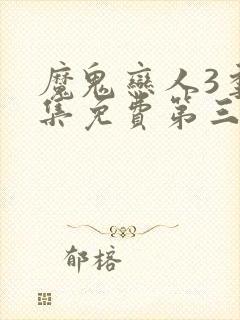 魔鬼恋人3全
集免费第三
郁榕